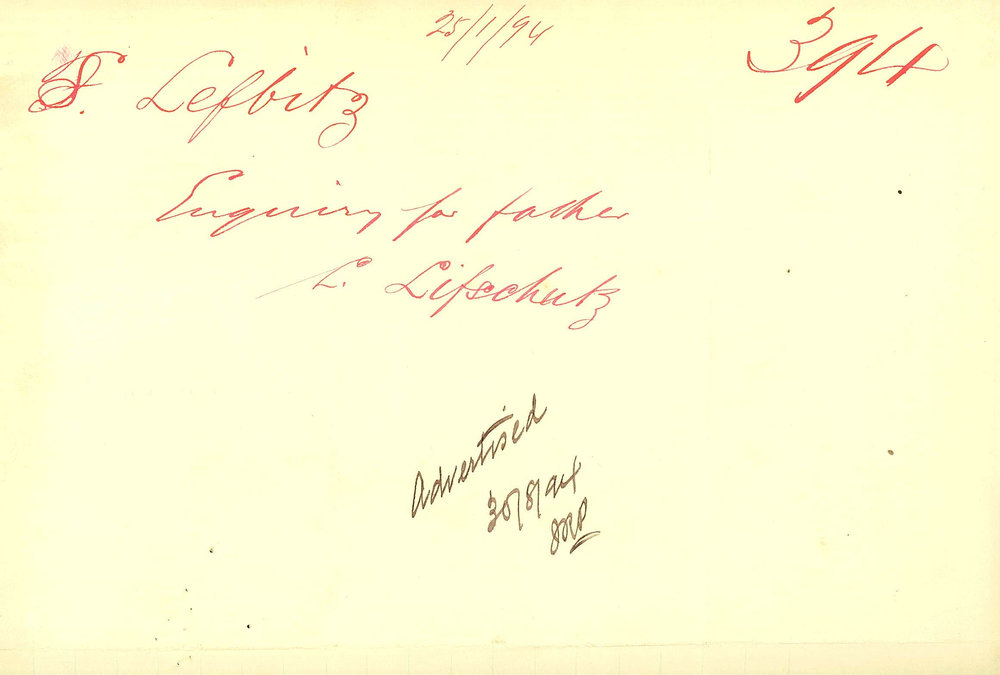 25/1/94
394
S. Lefbitz
Enquiry for father
L. Lifschutz
Advertised
30/8/94